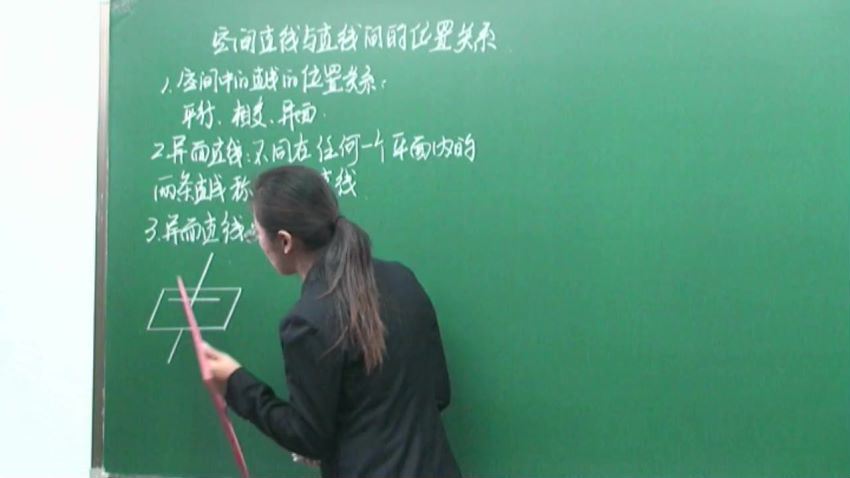 空间直线与直线间的位置关系
1.空间中的直线的位置关系:
平行、相交、异面.
2.异面直线:不同在任何一个平面内的
两条直线称 直线
3.异面直线